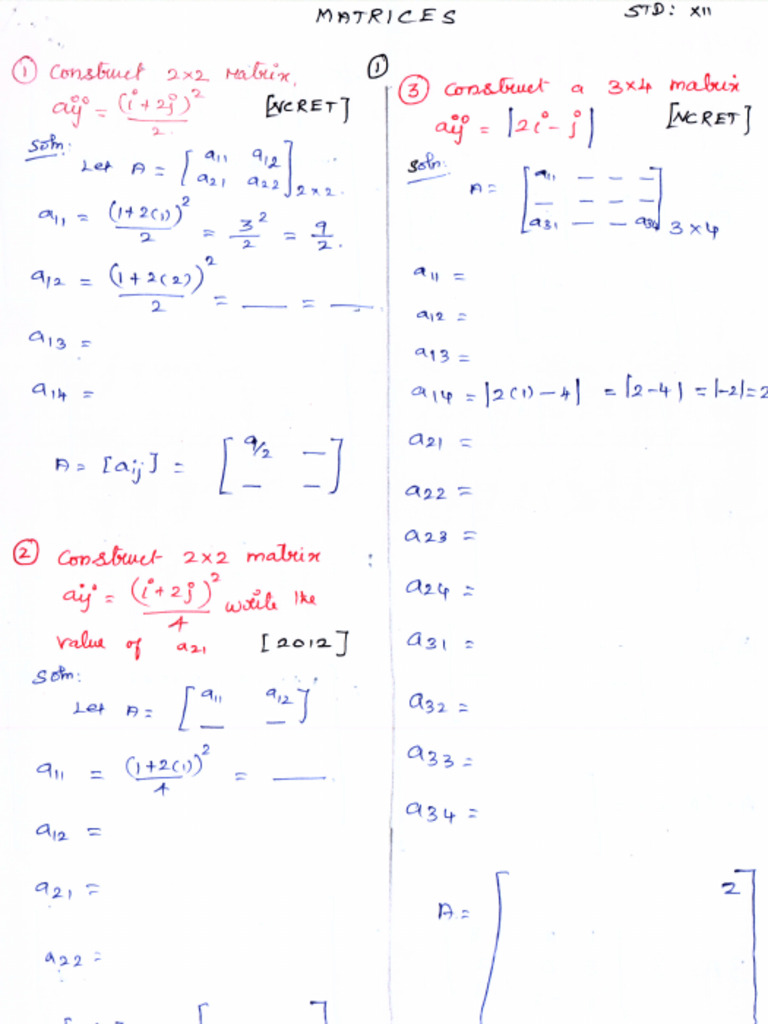 MATRICES STD: XII
①
① Construct 2×2 Matrix,
aij = (i+2j)²/2 [NCRET]
Soln:
Let A = [a11 a12
a21 a22]2×2.
a11 = (1+2(1))²/2 = 3²/2 = 9/2.
a12 = (1+2(2))²/2 = __ = __.
a13 =
a14 =
A = [aij] = [9/2 __
__ __]
② Construct 2×2 matrix :
aij = (i+2j)²/4 write the
value of a21 [2012]
Soln:
Let A = [a11 a12
__ __]
a11 = (1+2(1))²/4 = ____.
a12 =
a21 =
a22 =
③ Construct a 3×4 matrix
aij = |2i-j| [NCRET]
Soln:
A = [a11 _ _ _
_ _ _ _
a31 _ _ a34] 3×4
a11 =
a12 =
a13 =
a14 = |2(1)-4| = |2-4| = |-2| = 2
a21 =
a22 =
a23 =
a24 =
a31 =
a32 =
a33 =
a34 =
A = [ 2 ]